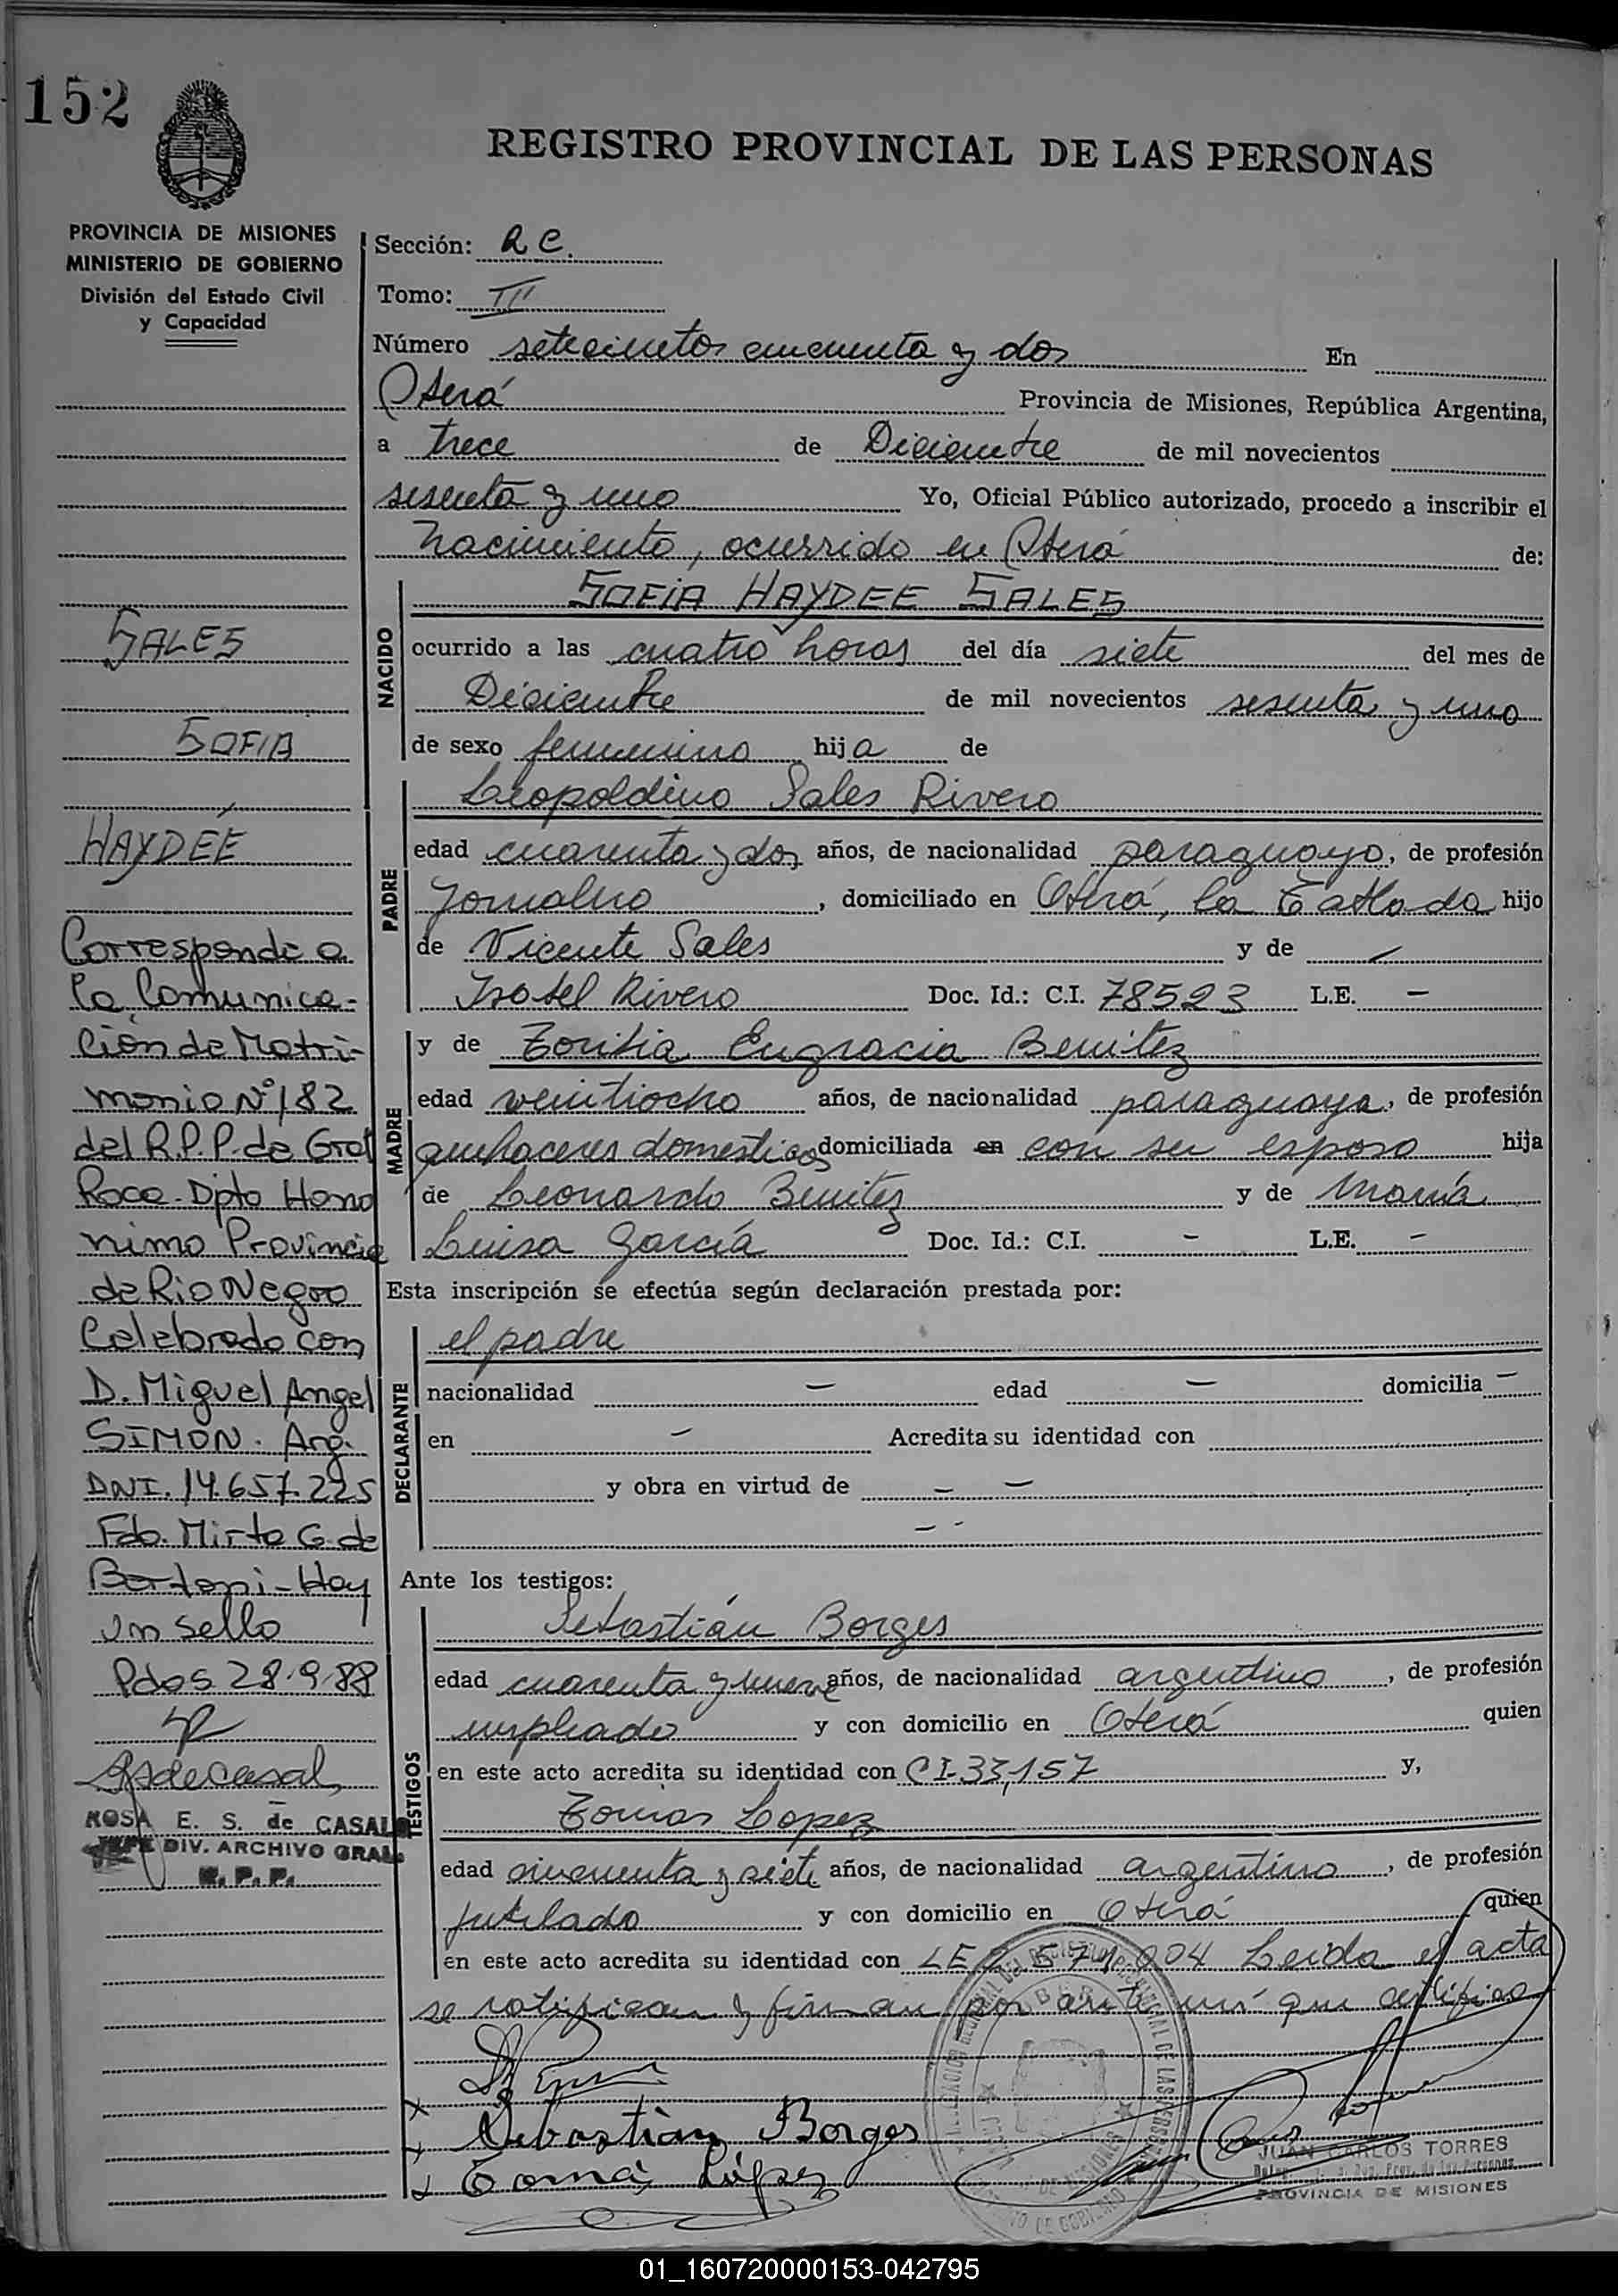 152
REGISTRO PROVINCIAL DE LAS PERSONAS
PROVINCIA DE MISIONES
MINISTERIO DE GOBIERNO
División del Estado Civil
y Capacidad
SALES
SOFIA
HAYDÉE
Corresponde a
la Comunica-
ción de Matri-
monio Nº 182
del R.P.P. de Gral
Roca - Dpto Homo
nimo Provincia
de Rio Negro
Celebrado con
D. Miguel Angel
SIMON. Arg.
DNI. 14.657.225
Fdo. Mirta G. de
Bordoni - Hay
un sello
Pdas 28.9.88
ROSA E. S. de CASALS
JEFE DIV. ARCHIVO GRAL.
R. P. P.
Sección: R C.
Tomo: III
Número setecientos cincuenta y dos En
Oberá Provincia de Misiones, República Argentina,
a trece de Diciembre de mil novecientos
sesenta y uno Yo, Oficial Público autorizado, procedo a inscribir el
nacimiento, ocurrido en Oberá de:
NACIDO
SOFIA HAYDEE SALES
ocurrido a las cuatro horas del día siete del mes de
Diciembre de mil novecientos sesenta y uno
de sexo femenino hija de
PADRE
Leopoldino Sales Rivero
edad cuarenta y dos años, de nacionalidad paraguayo, de profesión
Jornalero, domiciliado en Oberá, la hijo
de Vicente Sales y de —
Isabel Rivero Doc. Id.: C.I. 78523 L.E. —
MADRE
y de Zorilia Engracia Benitez
edad veintiocho años, de nacionalidad paraguaya, de profesión
quehaceres domesticos domiciliada en con su esposo hija
de Leonardo Benitez y de María
Luisa García Doc. Id.: C.I. — L.E. —
Esta inscripción se efectúa según declaración prestada por:
DECLARANTE
el padre
nacionalidad — edad — domicilia —
en — Acredita su identidad con
y obra en virtud de — —
— -
Ante los testigos:
TESTIGOS
Sebastián Borges
edad cuarenta y nueve años, de nacionalidad argentino, de profesión
empleado y con domicilio en Oberá quien
en este acto acredita su identidad con CI-33,157 y,
Tomas Lopez
edad cincuenta y siete años, de nacionalidad argentino, de profesión
jubilado y con domicilio en Oberá quien
en este acto acredita su identidad con LE Leida el acta
se ratifican y firman por ante mí que certifico
Sebastian Borges
Tomás López
JUAN CARLOS TORRES
PROVINCIA DE MISIONES
01_160720000153-042795